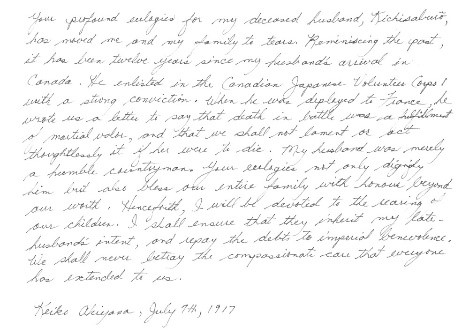 Your profound eulogies for my deceased husband, Kichisaburo,
has moved me and my family to tears. Reminiscing the past,
it has been twelve years since my husband's arrival in
Canada. He enlisted in the Canadian Japanese Volunteer Corps
with a strong conviction. When he was deployed to France, he
wrote us a letter to say that death in battle was a
martial valor, and that we shall not lament or act
thoughtlessly if he were to die. My husband was merely
a humble countryman. Your eulogies not only dignify
him but also bless our entire family with honour beyond
our worth. Henceforth, I will be devoted to the rearing of
our children. I shall ensure that they inherit my late-
husband's intent, and repay the debt to imperial benevolence.
We shall never betray the compassionate care that everyone
has extended to us.
Keiko Akiyama, July 9th, 1917